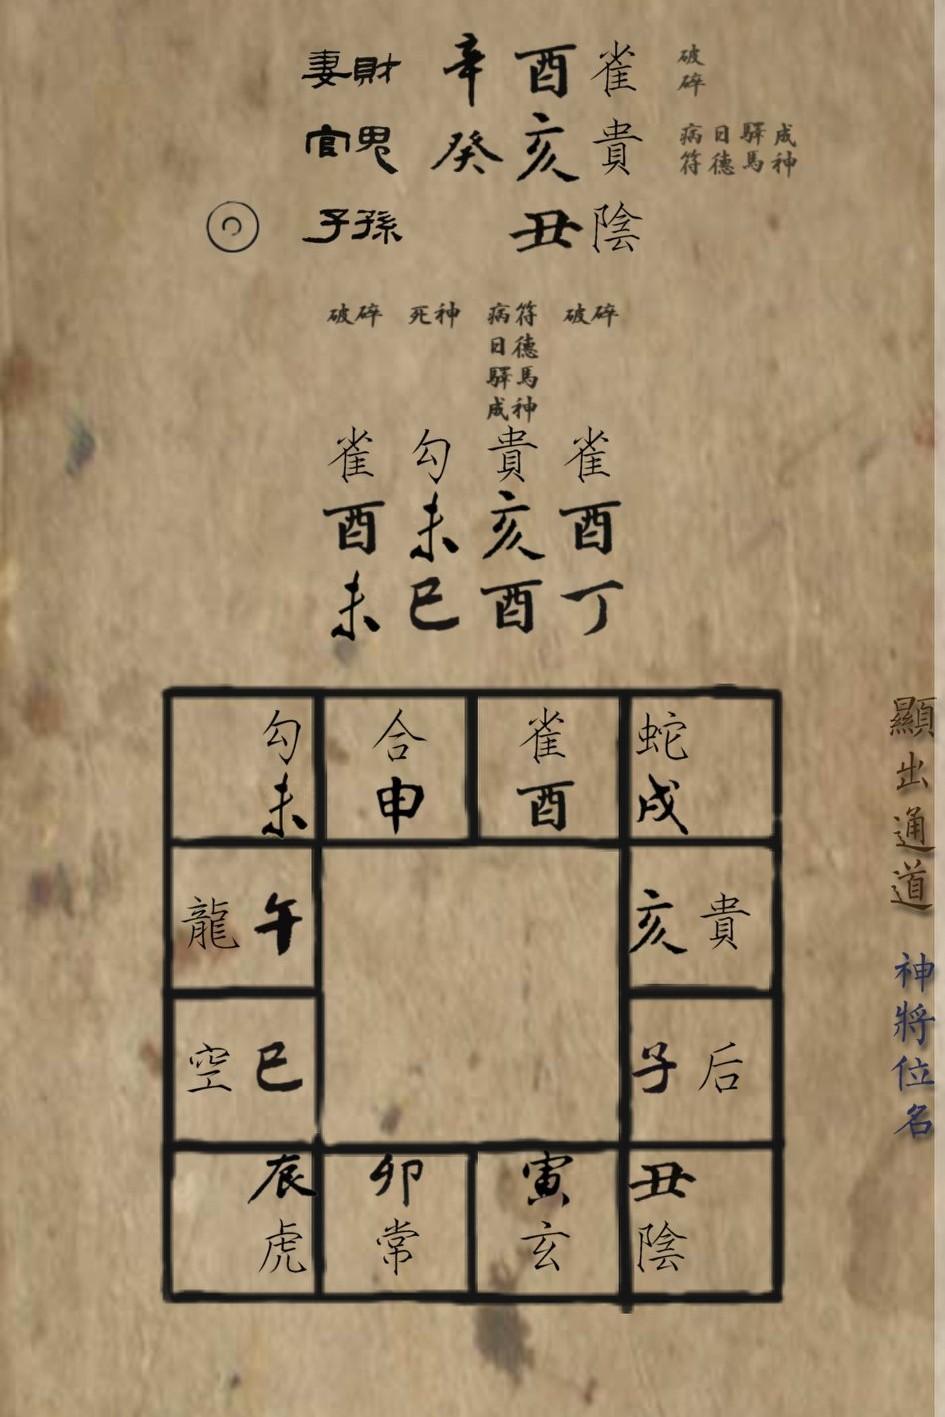 妻財 辛 酉 雀 破碎
官鬼 癸 亥 貴 病符 日德 驛馬 成神
子孫 丑 陰
破碎 死神 病符 破碎
日德
驛馬
成神
雀 勾 貴 雀
酉 未 亥 酉
未 巳 酉 丁
勾 合 雀 蛇
未 申 酉 戌
龍 午 亥 貴
空 巳 子 后
辰 卯 寅 丑
虎 常 玄 陰
顯出通道
神將位名